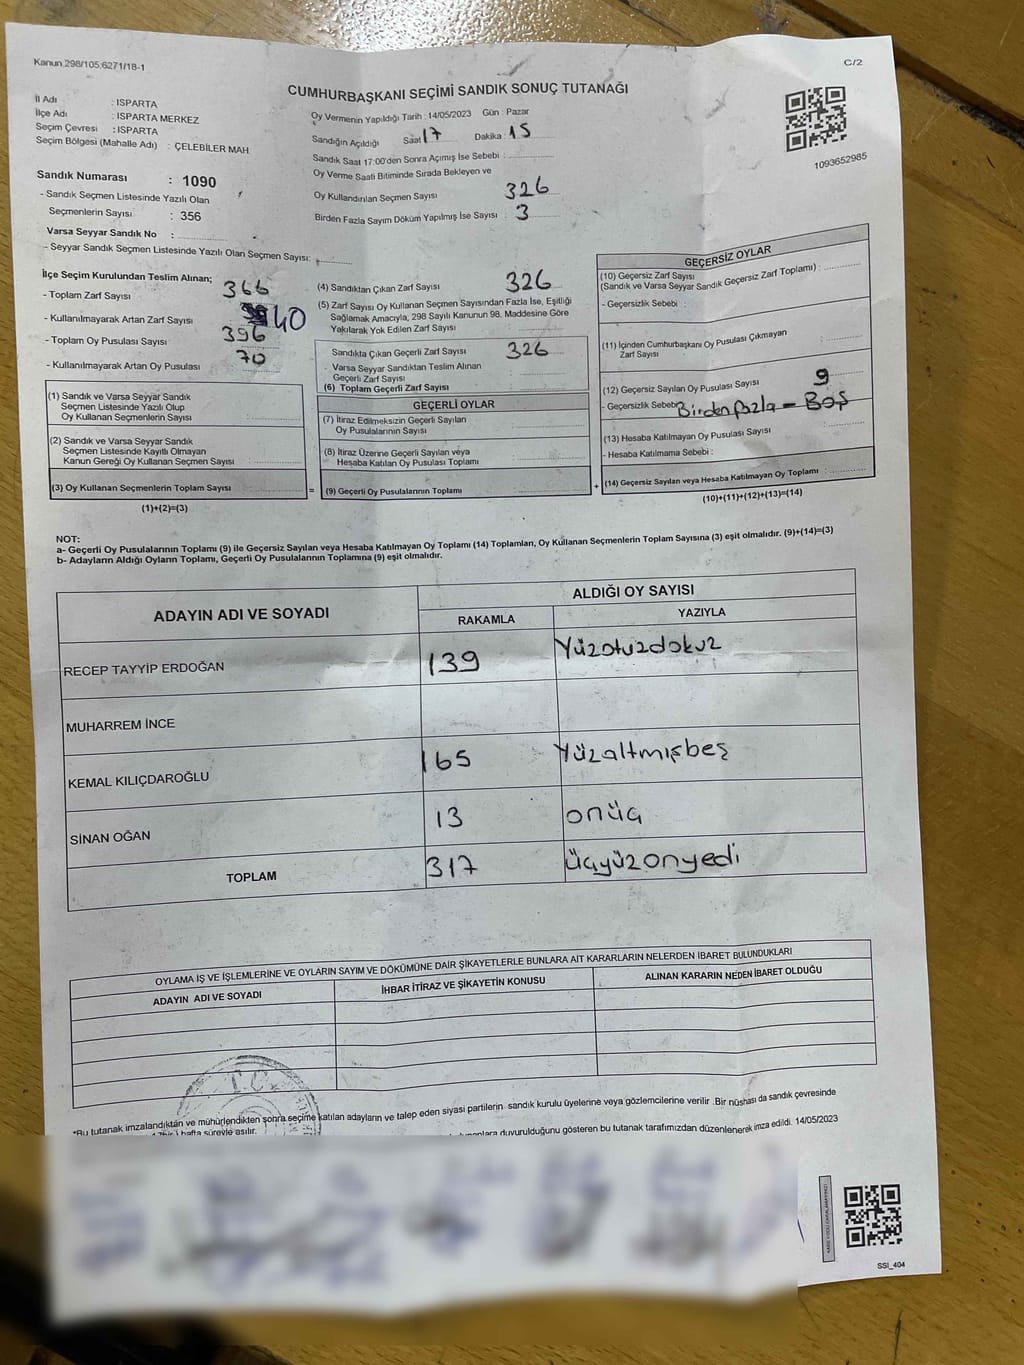 Kanun.298/105;6271/18-1
C/2
CUMHURBAŞKANI SEÇİMİ SANDIK SONUÇ TUTANAĞI
İl Adı : ISPARTA
İlçe Adı : ISPARTA MERKEZ
Seçim Çevresi : ISPARTA
Seçim Bölgesi (Mahalle Adı) : ÇELEBİLER MAH.
Oy Vermenin Yapıldığı Tarih : 14/05/2023 Gün : Pazar
Sandığın Açıldığı Saat 17 Dakika : 15
Sandık Saat 17:00'den Sonra Açımış İse Sebebi :
Oy Verme Saati Bitiminde Sırada Bekleyen ve
Oy Kullandırılan Seçmen Sayısı 326
Birden Fazla Sayım Döküm Yapılmış İse Sayısı : 3
1093652985
Sandık Numarası : 1090
- Sandık Seçmen Listesinde Yazılı Olan
Seçmenlerin Sayısı : 356
Varsa Seyyar Sandık No :
- Seyyar Sandık Seçmen Listesinde Yazılı Olan Seçmen Sayısı:
İlçe Seçim Kurulundan Teslim Alınan;
- Toplam Zarf Sayısı 366
- Kullanılmayarak Artan Zarf Sayısı 40
- Toplam Oy Pusulası Sayısı 396
- Kullanılmayarak Artan Oy Pusulası 70
(1) Sandık ve Varsa Seyyar Sandık
Seçmen Listesinde Yazılı Olup
Oy Kullanan Seçmenlerin Sayısı
(2) Sandık ve Varsa Seyyar Sandık
Seçmen Listesinde Kayıtlı Olmayan
Kanun Gereği Oy Kullanan Seçmen Sayısı
(3) Oy Kullanan Seçmenlerin Toplam Sayısı
(1)+(2)=(3)
(4) Sandıktan Çıkan Zarf Sayısı 326
(5) Zarf Sayısı Oy Kullanan Seçmen Sayısından Fazla İse, Eşitliği
Sağlamak Amacıyla, 298 Sayılı Kanunun 98. Maddesine Göre
Yakılarak Yok Edilen Zarf Sayısı :
Sandıkta Çıkan Geçerli Zarf Sayısı 326
Varsa Seyyar Sandıktan Teslim Alınan
Geçerli Zarf Sayısı
(6) Toplam Geçerli Zarf Sayısı
GEÇERLİ OYLAR
(7) İtiraz Edilmeksizin Geçerli Sayılan
Oy Pusulalarının Sayısı
(8) İtiraz Üzerine Geçerli Sayılan veya
Hesaba Katılan Oy Pusulası Toplamı
= (9) Geçerli Oy Pusulalarının Toplamı
GEÇERSİZ OYLAR
(10) Geçersiz Zarf Sayısı
(Sandık ve Varsa Seyyar Sandık Geçersiz Zarf Toplamı) :
- Geçersizlik Sebebi :
(11) İçinden Cumhurbaşkanı Oy Pusulası Çıkmayan
Zarf Sayısı :
(12) Geçersiz Sayılan Oy Pusulası Sayısı 9
- Geçersizlik Sebebi Birden fazla - Boş
(13) Hesaba Katılmayan Oy Pusulası Sayısı :
- Hesaba Katılmama Sebebi :
+ (14) Geçersiz Sayılan veya Hesaba Katılmayan Oy Toplamı :
(10)+(11)+(12)+(13)=(14)
NOT:
a- Geçerli Oy Pusulalarının Toplamı (9) ile Geçersiz Sayılan veya Hesaba Katılmayan Oy Toplamı (14) Toplamları, Oy Kullanan Seçmenlerin Toplam Sayısına (3) eşit olmalıdır. (9)+(14)=(3)
b- Adayların Aldığı Oyların Toplamı, Geçerli Oy Pusulalarının Toplamına (9) eşit olmalıdır.
ADAYIN ADI VE SOYADI
ALDIĞI OY SAYISI
RAKAMLA YAZIYLA
RECEP TAYYİP ERDOĞAN 139 Yüzotuzdokuz
MUHARREM İNCE
KEMAL KILIÇDAROĞLU 165 Yüzaltmışbeş
SİNAN OĞAN 13 onüç
TOPLAM 317 üçyüzonyedi
OYLAMA İŞ VE İŞLEMLERİNE VE OYLARIN SAYIM VE DÖKÜMÜNE DAİR ŞİKAYETLERLE BUNLARA AİT KARARLARIN NELERDEN İBARET BULUNDUKLARI
ADAYIN ADI VE SOYADI İHBAR İTİRAZ VE ŞİKAYETİN KONUSU ALINAN KARARIN NEDEN İBARET OLDUĞU
T.C.
*Bu tutanak imzalandıktan ve mühürlendikten sonra seçime katılan adayların ve talep eden siyasi partilerin sandık kurulu üyelerine veya gözlemcilerine verilir. Bir nüshası da sandık çevresinde
hafta süreyle asılır.
duyurulduğunu gösteren bu tutanak tarafımızdan düzenlenerek imza edildi. 14/05/2023
SSI_404